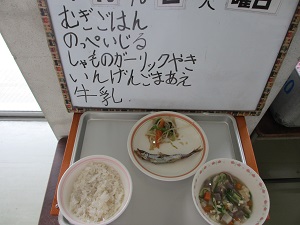 火 曜日
むぎごはん
のっぺいじる
しゃものガーリックやき
いんげんごまあえ
牛乳